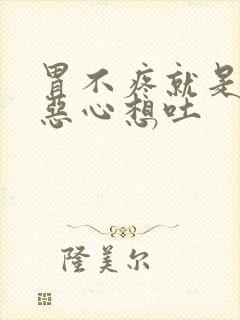 胃不疼就是
恶心想吐
隆美尔